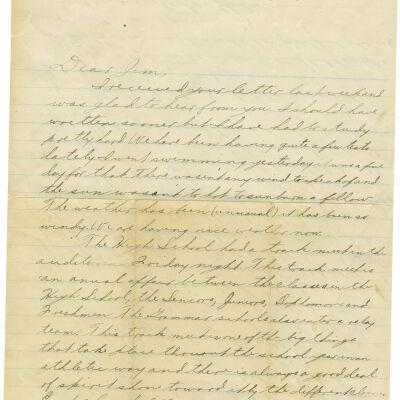 Dear Jim,
I received your letter last week and
was glad to hear from you. I should have
written sooner but I have had to study
pretty hard We have been having quite a few tests
lately. I went swimming yesterday it was a fine
day for that there wasn't any wind to speak of and
the sun wasn't to hot to sunburn a fellow.
The weather has been (unusual) it has been so
windy. We are having nice weather now.
The High School had a track meet in the
Friday night This track meet is
an anual affair between the classes in the
High School, the Seniors, Juniors, Sophomore and
Freshmen the Grammar schools also enter a relay
team. This track meet is one of the big things
that take place thruout the school year in an
athletic way and there is always a good deal
of spirit show toward it by the different